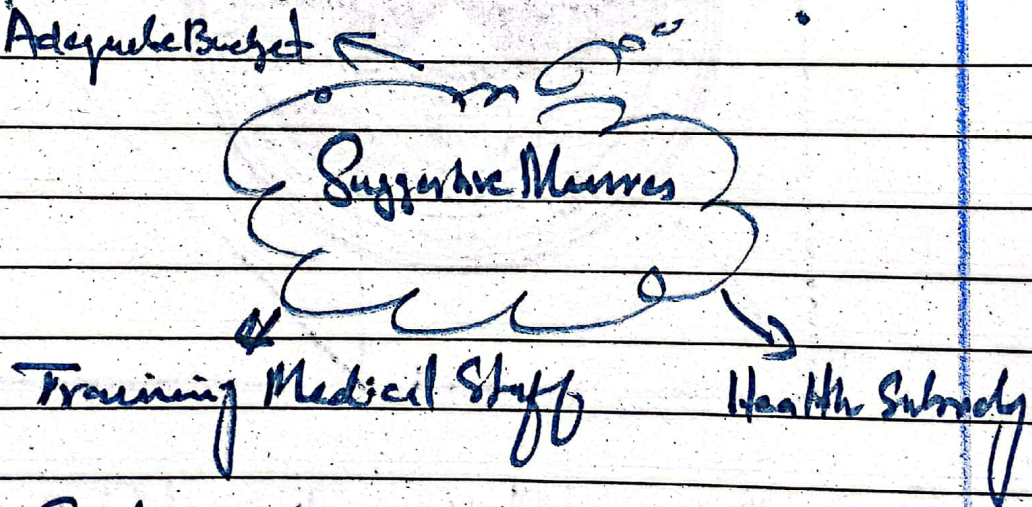 Adequate Budget
Suggestive Measures
Training Medical Staff
Health Subsidy